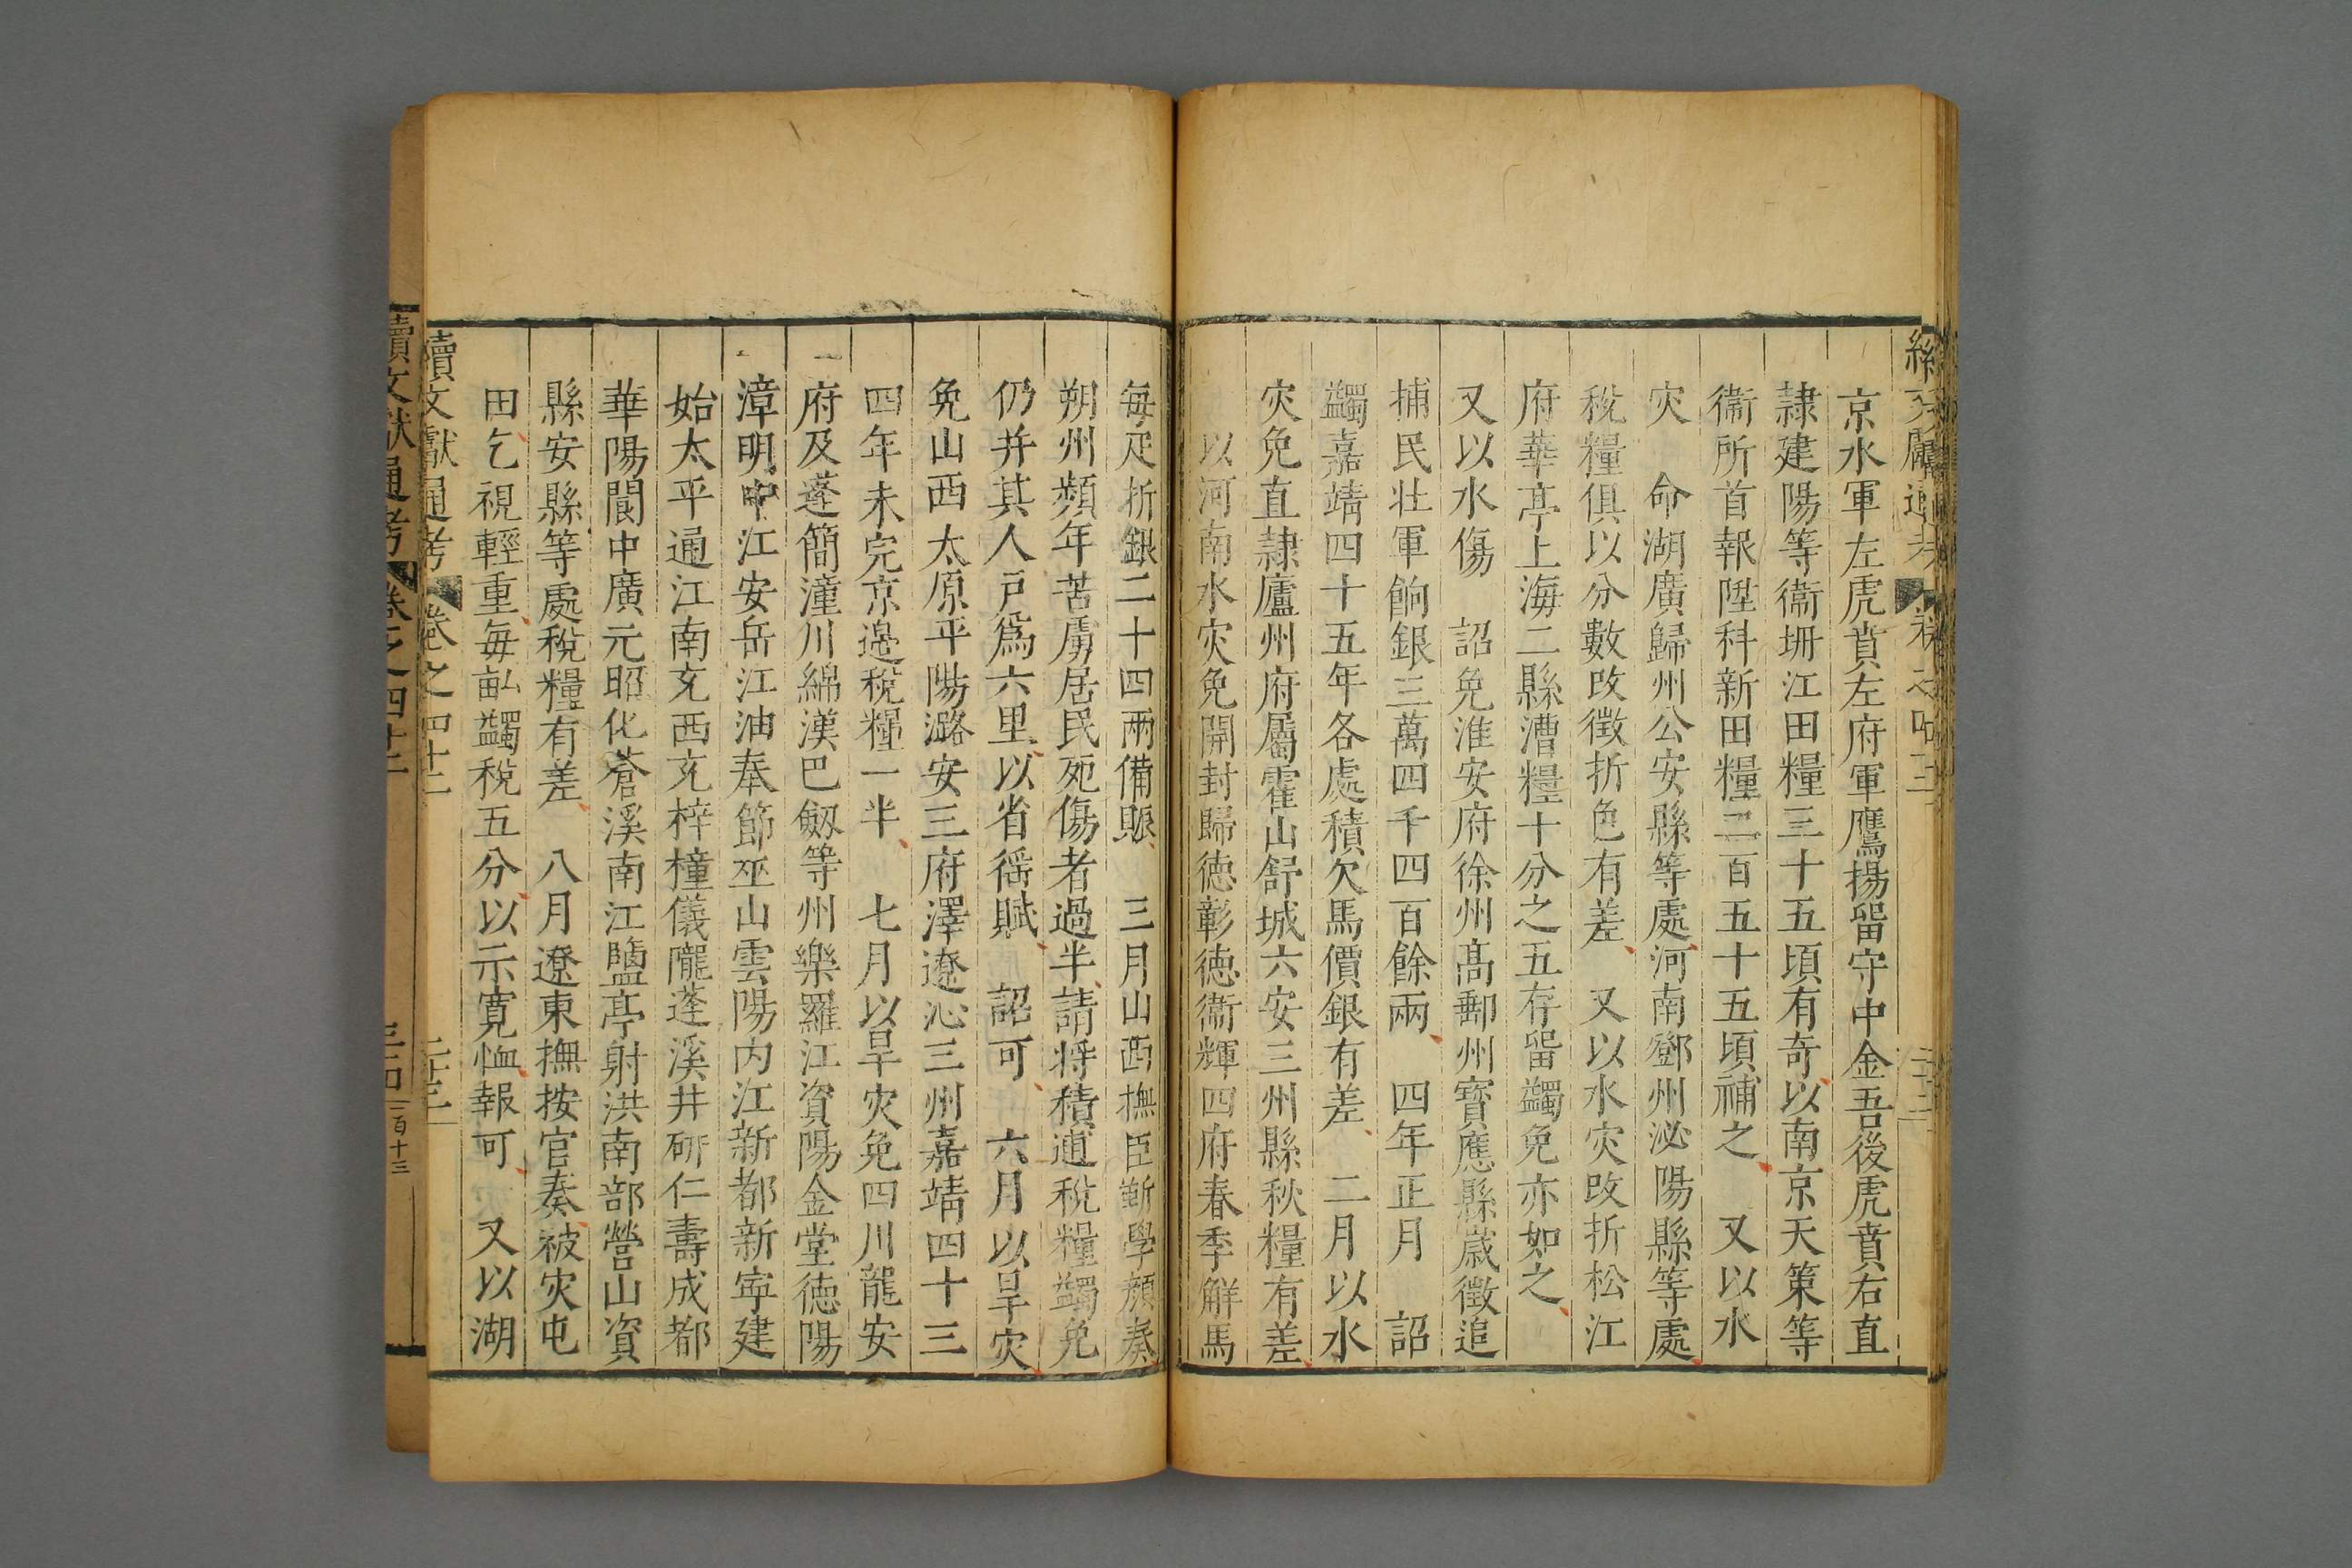 京水軍左虎賁左府軍鷹揚留守中金吾後虎賁右直
隷建陽等衞坍江田糧三十五頃有奇以南京天策等
衞所首報陞科新田糧二百五十五頃補之　又以水
灾　命湖廣歸州公安縣等處河南鄧州泌陽縣等處
稅糧俱以分數改徵折色有差　又以水灾改折松江
府華亭上海二縣漕糧十分之五存留蠲免亦如之
又以水傷　詔免淮安府徐州高郵州寳應縣歲徵追
捕民壯軍餉銀三萬四千四百餘兩　四年正月　詔
蠲嘉靖四十五年各處積欠馬價銀有差　二月以水
灾免直隷廬州府屬霍山舒城六安三州縣秋糧有差
以河南水灾免開封歸徳彰徳衞輝四府春季解馬
每疋折銀二十四兩備賑　三月山西撫臣靳學顏奏
朔州頻年苦虜居民死傷者過半請將積逋稅糧蠲免
仍并其人戸爲六里以省徭賦　詔可　六月以旱灾
免山西太原平陽潞安三府澤遼沁三州嘉靖四十三
四年未完京邊稅糧一半　七月以旱灾免四川龍安
府及蓬簡潼川綿漢巴劔等州樂羅江資陽金堂徳陽
漳明中江安岳江油奉節巫山雲陽内江新都新寜建
始太平通江南充西充梓橦儀隴蓬溪井研仁壽成都
華陽閬中廣元昭化蒼溪南江鹽亭射洪南部營山資
縣安縣等處稅糧有差　八月遼東撫按官奏被灾屯
田乞視輕重每畆蠲稅五分以示寛恤報可　又以湖
續文獻通考　卷之四十二
續文獻通考　卷之四十二　一百十三